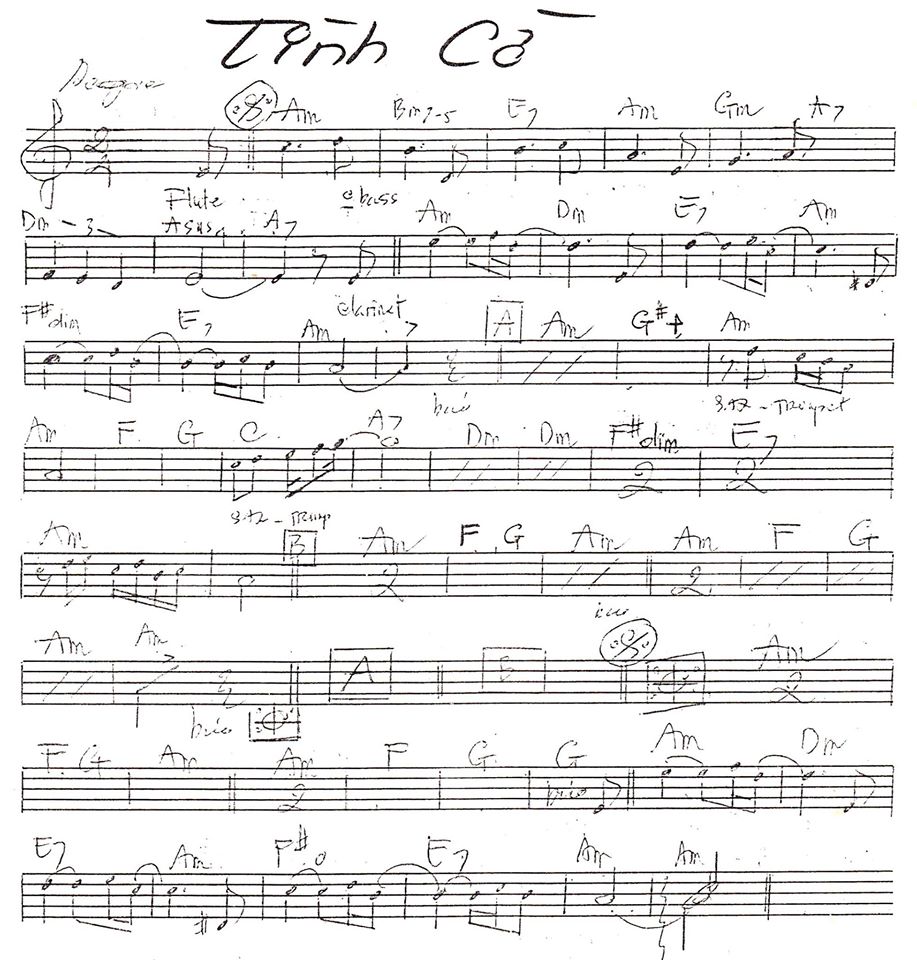 Tình Cờ
Am Bm7-5 E7 Am Gm A7
Flute e bass
Dm - 3 - Asus4 A7 Am Dm E7 Am
clarinet
F#dim E7 Am A Am G#+ Am
SAX - Trumpet
Am F G C A7 Dm Dm F#dim E7
2 2
SAX - Trump
Am B Am F G Am Am F G
2 2
Am Am A B Am
2
F G Am Am F G G Am Dm
2
E7 Am F#o E7 Am Am